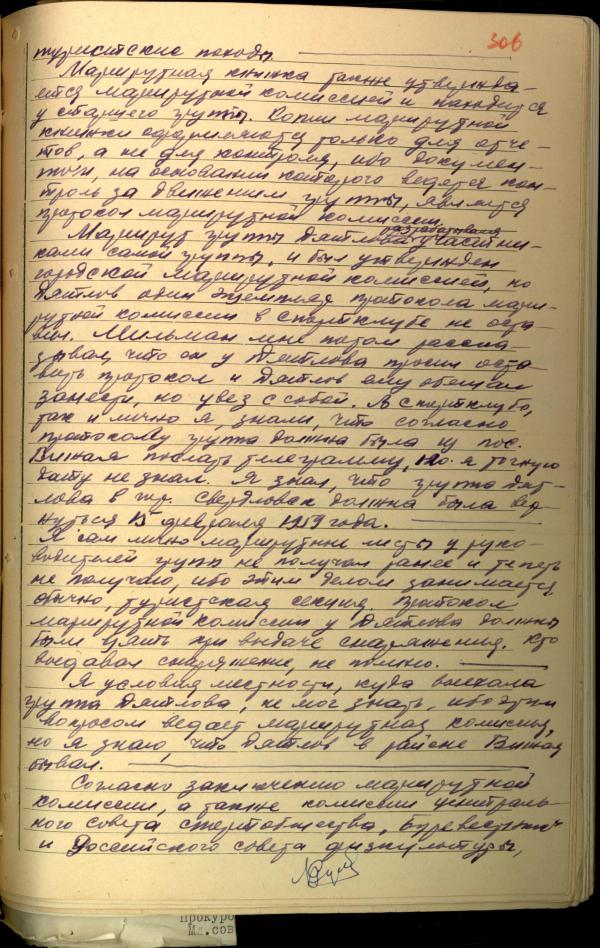 306
туристские походы.
Маршрутная книжка также утвержда-
ется маршрутной комиссией и находится
у старшего группы. Копии маршрутной
книжки оформляются только для отче-
тов, а не для контроля, ибо докумен-
том, на основании которого ведется кон-
троль за движением группы, является
протокол маршрутной комиссии.
разрабатывался
Маршрут группы Дятлова участни-
ками самой группы, и был утвержден
городской маршрутной комиссией, но
Дятлов один экземпляр протокола марш-
рутной комиссии в спортклубе не оста-
вил. Мильман мне потом расска-
зывал, что он у Дятлова просил оста-
вить протокол и Дятлов ему обещал
занести, но увез с собой. В спортклубе,
так и лично я, знали, что согласно
протоколу группа должна была из пос.
Вижая послать телеграмму, но я точную
дату не знал. Я знал, что группа Дят-
лова в гор. Свердловск должна была вер-
нуться 15 февраля 1959 года.
Я сам лично маршрутные листы у руко-
водителей групп не получал ранее и теперь
не получаю, ибо этим делом занимается
обычно, туристская секция. Протокол
маршрутной комиссии у Дятлова должны
были взять при выдаче снаряжения. Кто
выдавал снаряжение, не помню.
Я условия местности, куда выехала
группа Дятлова, не мог знать, ибо этим
вопросом ведает маршрутная комиссия,
но я знаю, что Дятлов в районе Вижая
бывал.
Согласно заключению маршрутной
комиссии, а также комиссии централь-
ного совета спортобщества "Буревестник"
и Российского совета физкультуры,
Прокуро
Мл.сов